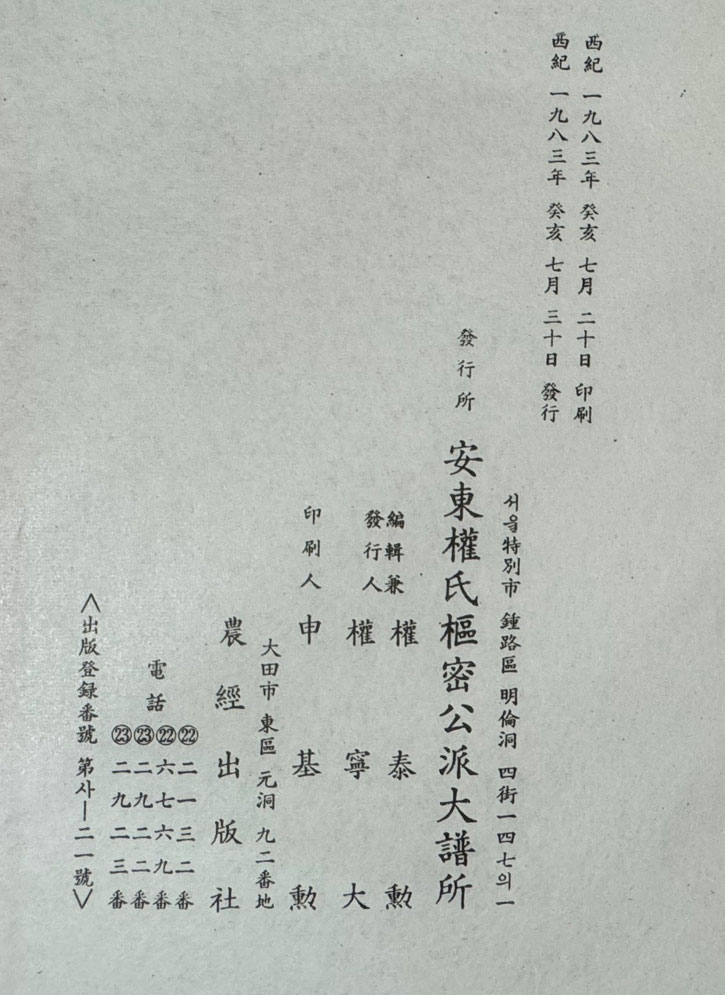 西紀 一九八三年 癸亥 七月 二十日 印刷
西紀 一九八三年 癸亥 七月 三十日 發行
서울特別市 鍾路區 明倫洞 四街一四七의一
發行所 安東權氏樞密公派大譜所
編輯兼 權泰勳
發行人 權寧大
印刷人 申基勳
大田市 東區 元洞 九二番地
農經出版社
電話
㉒二一三二番
㉒六七六九番
㉓二九二二番
㉓二九二三番
〈出版登録番號 第사—二一號〉